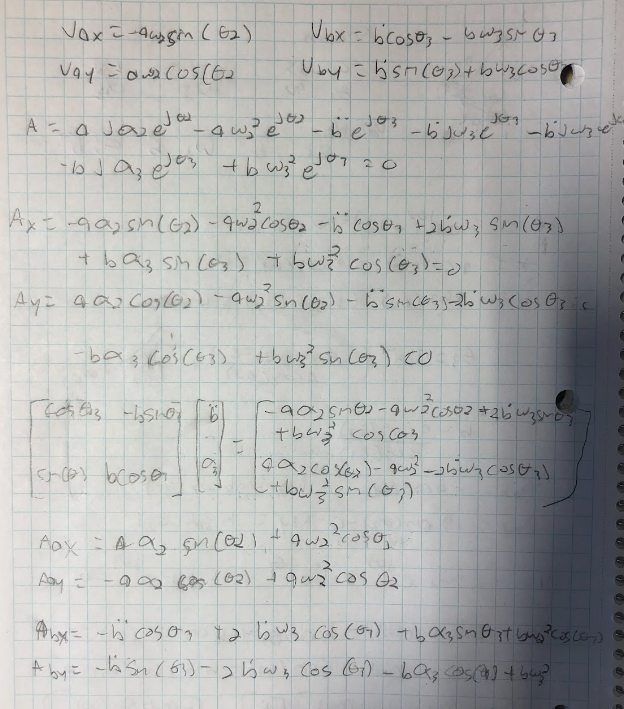 Vax = -aω2 sin(θ2) Vbx = ḃcosθ3 - bω3 sin θ3
Vay = aω2 cos(θ2 Vby = ḃ sin(θ3) + bω3 cosθ
A = a j α2 e^jθ2 - a ω2² e^jθ2 - b̈ e^jθ3 - ḃ j ω3 e^jθ3 - ḃ j ω3 e^j
- b j α3 e^jθ3 + b ω3² e^jθ3 = 0
Ax = -aα2 sin(θ2) - aω2² cosθ2 - b̈ cosθ3 + 2ḃω3 sin(θ3)
+ bα3 sin(θ3) + bω3² cos(θ3) = 0
Ay = aα2 cos(θ2) - aω2² sin(θ2) - b̈ sin(θ3) - 2ḃω3 cosθ3
- bα3 cos(θ3) + bω3² sin(θ3) = 0
[cosθ3 -bsinθ] [b̈] = [-aα2 sinθ2 - aω2² cosθ2 + 2ḃω3 sinθ3
+ bω3² cosθ3
sin(θ) bcosθ] [α3] aα2 cos(θ2) - aω2² - 2ḃω3 cosθ3)
+ bω3² sin(θ3)]
Aax = a α2 sin(θ2) + aω2² cosθ2
Aay = -aα2 cos(θ2) + aω2² cos θ2
Abx = -b̈ cosθ3 + 2 ḃω3 cos(θ3) + bα3 sinθ3 + bω3² cos(θ3)
Aby = -b̈ sin(θ3) - 2 ḃω3 cos(θ3) - bα3 cos(θ) + bω3²